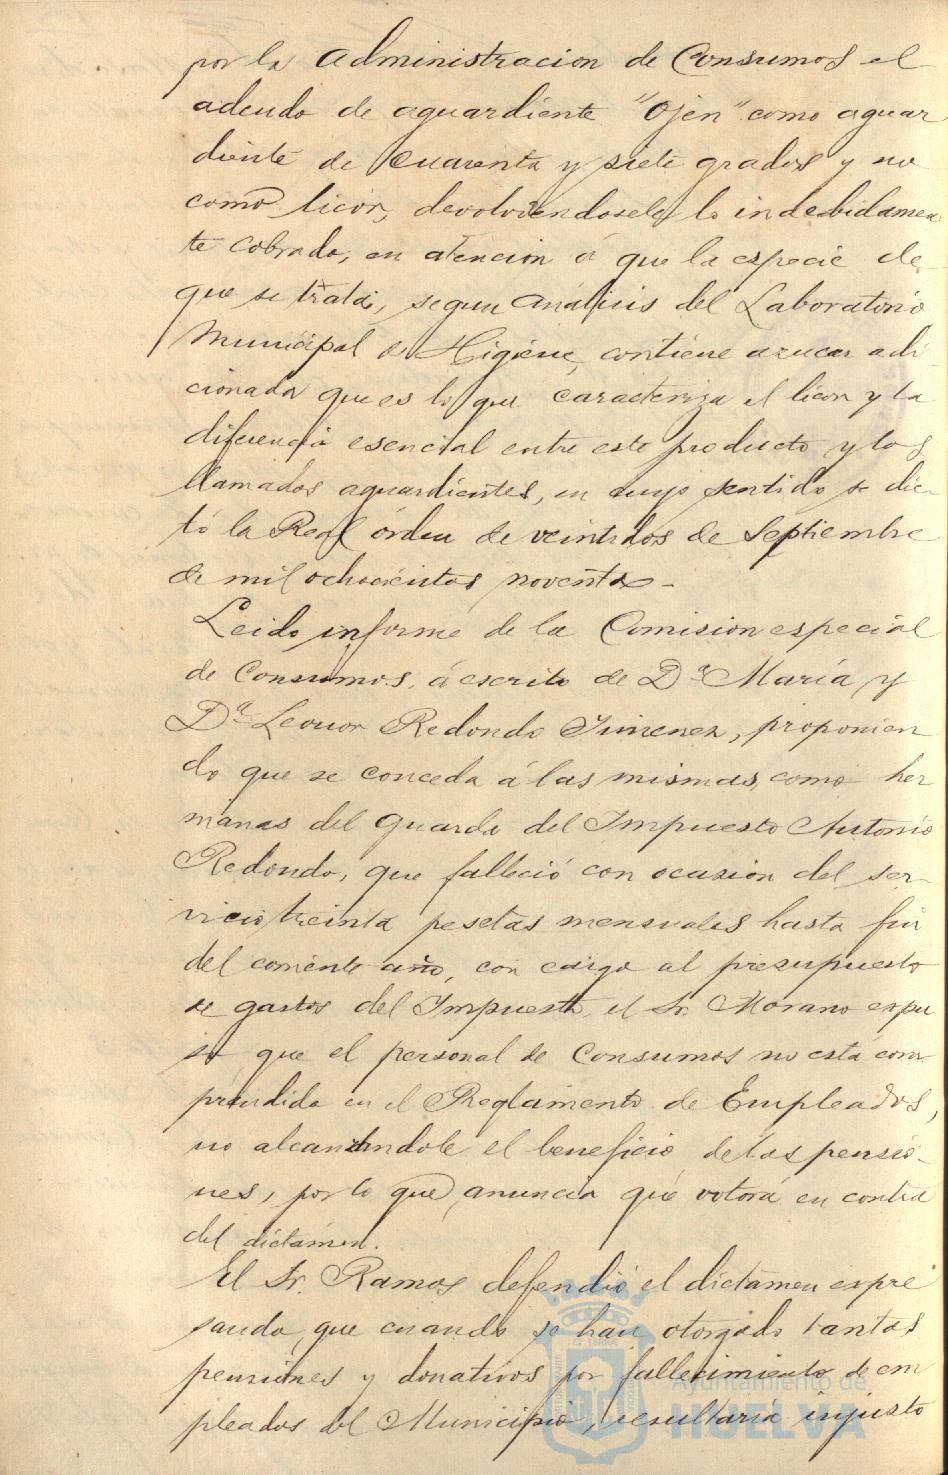 por la Administracion de Consumos el
adeudo de aguardiente "Ojen" como aguar
diente de cuarenta y siete grados y no
como licor, devolviendosele lo indebidamen
te cobrado, en atencion á que la especie de
que se trata, segun análisis del Laboratorio
Municipal de Higiene, contiene azucar adi
cionada que es lo que caracteriza el licor y la
diferencia esencial entre este producto y los
llamados aguardientes, en cuyo sentido se dic-
tó la Real órden de veintidos de Septiembre
de mil ochocientos noventa-
Leido informe de la Comision especial
de Consumos, á escrito de Dª María y
Dª Leonor Redondo Jimenez, proponien
do que se conceda á las mismas, como her
manas del guarda del Impuesto Antonio
Redondo, que falleció con ocasion del ser-
vicio treinta pesetas mensuales hasta fin
del corriente año, con cargo al presupuesto
de gastos del Impuesto, el Sr. Morano expu
so que el personal de Consumos no está com
prendido en el Reglamento de Empleados,
no alcanzandole el beneficio de las pensio-
nes, por lo que anuncia que votará en contra
del dictámen.
El Sr. Ramos defendió el dictámen expre
sando que cuando se han otorgado tantas
pensiones y donativos por fallecimiento de em
pleados del Municipio, resultaría injusto
Ayuntamiento de
HUELVA